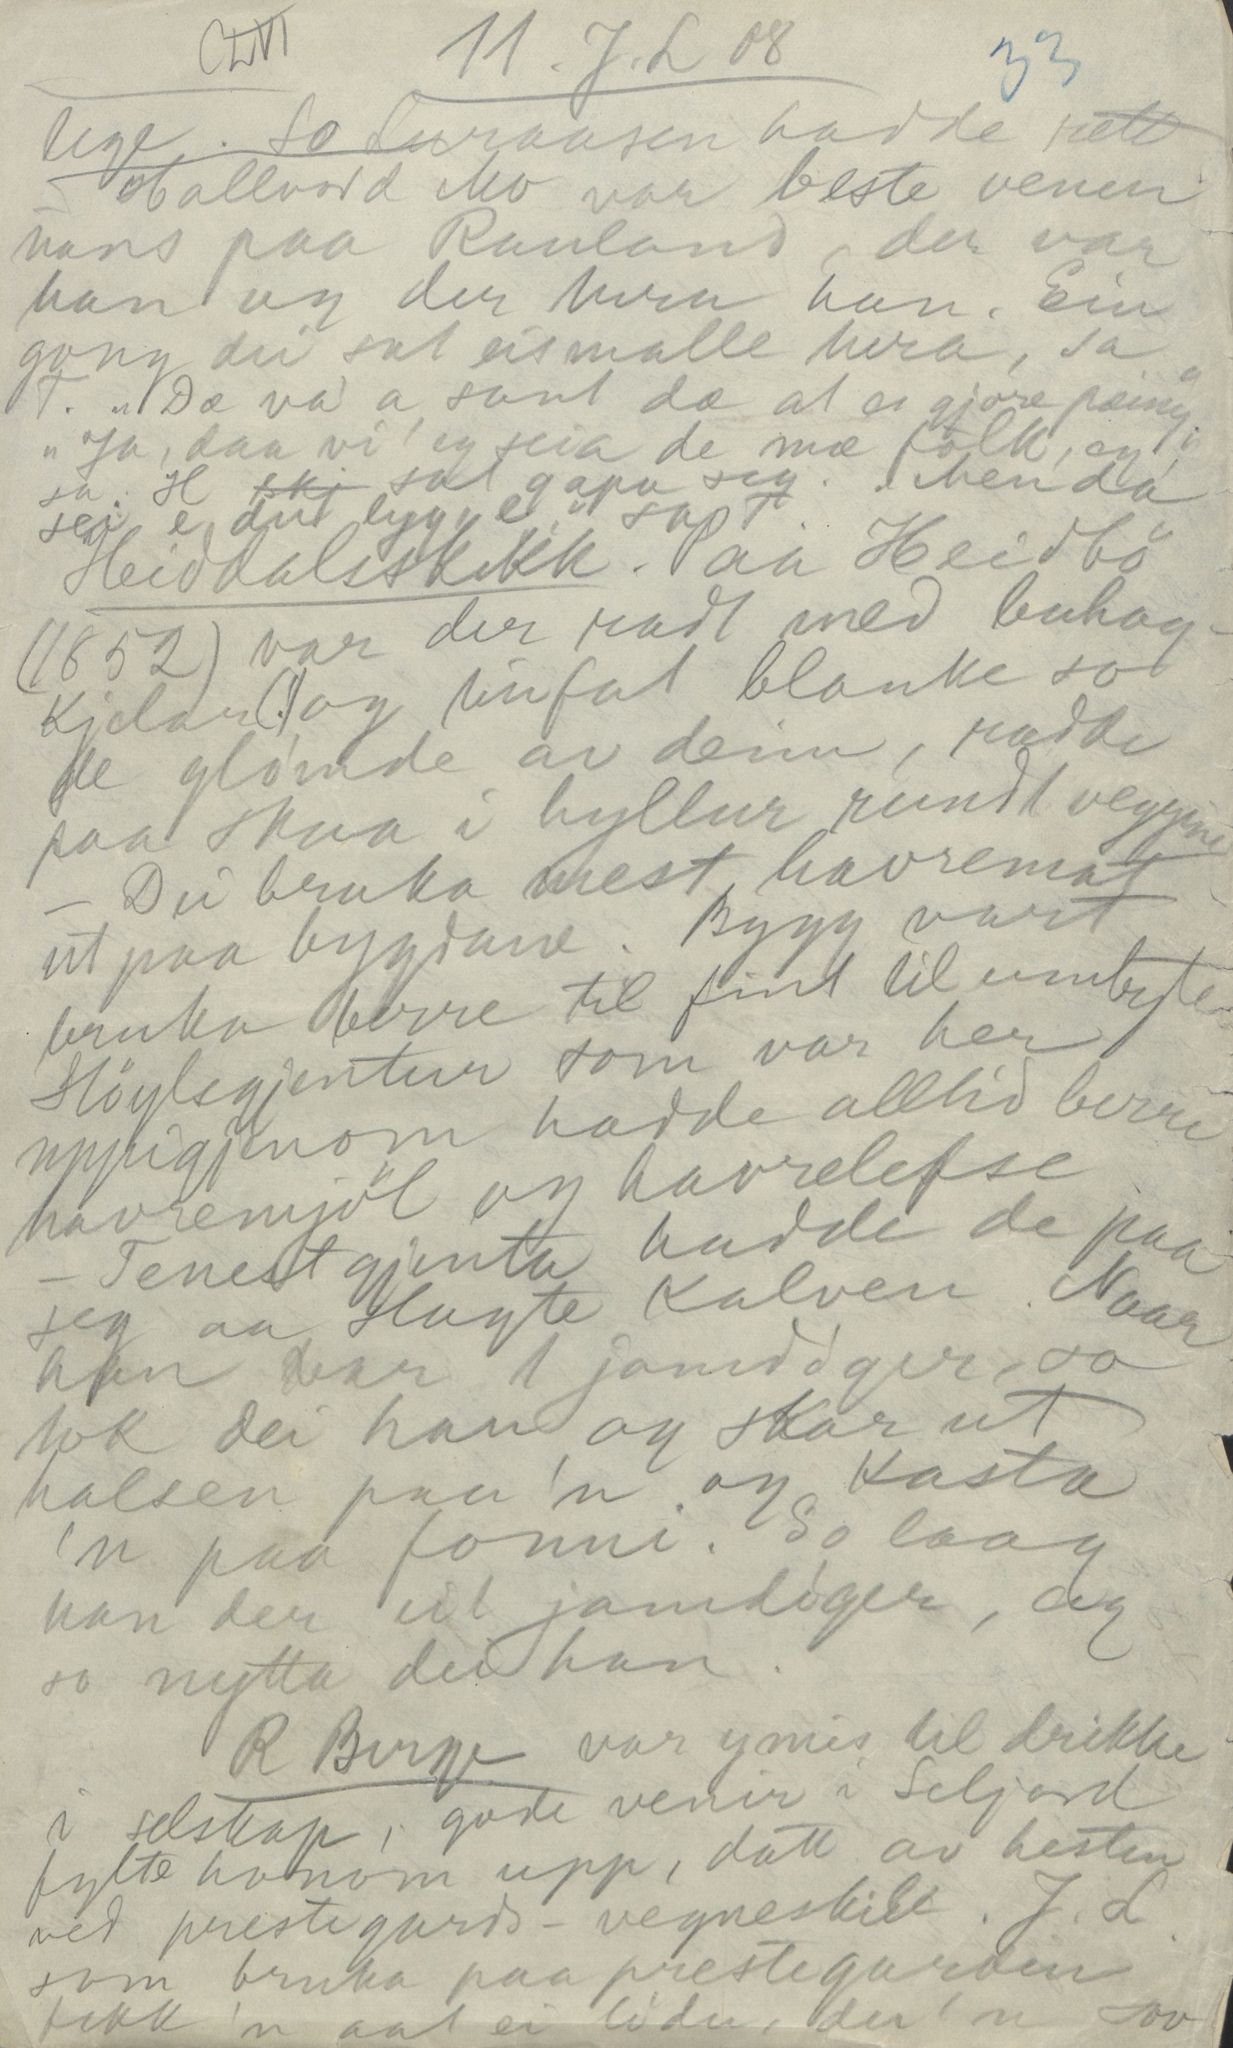 CLVI 11. J. L 08 33
lege. So Luraasen hadde rett
- Hallvord Mo var beste venen
hans paa Rauland, der var
han og der hera han. Ein
gong dei sat eismalle hera, sa
T. "Dæ va' a sant dæ at ei gjøre pæing"
"Ja, daa vi' eg seia de mæ folk, eg"
sa. H skj sat gapa seg. Men da
sei e du lyg, e" sa T.
Heiddalsskikk. Paa Heidbö
(1852) var der radt med buhag-
Kjelar (!) og tinfat blanke so
de glomde av deim, radde
paa skaa i hyllur rundt veggine
- Dei bruka mest havremat
ut paa bygdane. Bygg vart
bruka berre til fint til umbyte
Støylsgjentur som var her
uppigjenom hadde alltid berre
havremjöl og havrelefse
- Tenestgjenta hadde de paa
seg aa slagte kalven. Naar
han var 1 jamdöger, so
tok dei han og skar ut
halsen paa 'n og kasta
'n paa fonni. So laag
han der eit jamdöger, og
so nytta dei han.
R Berge var ymis til drikke
i selskap, gode venir i Seljord
fylte honom upp, datt av hesten
ved prestegards-vegneskile. J. L
som bruka paa prestegarden
fekk 'n aat ei lödu, der 'n sov